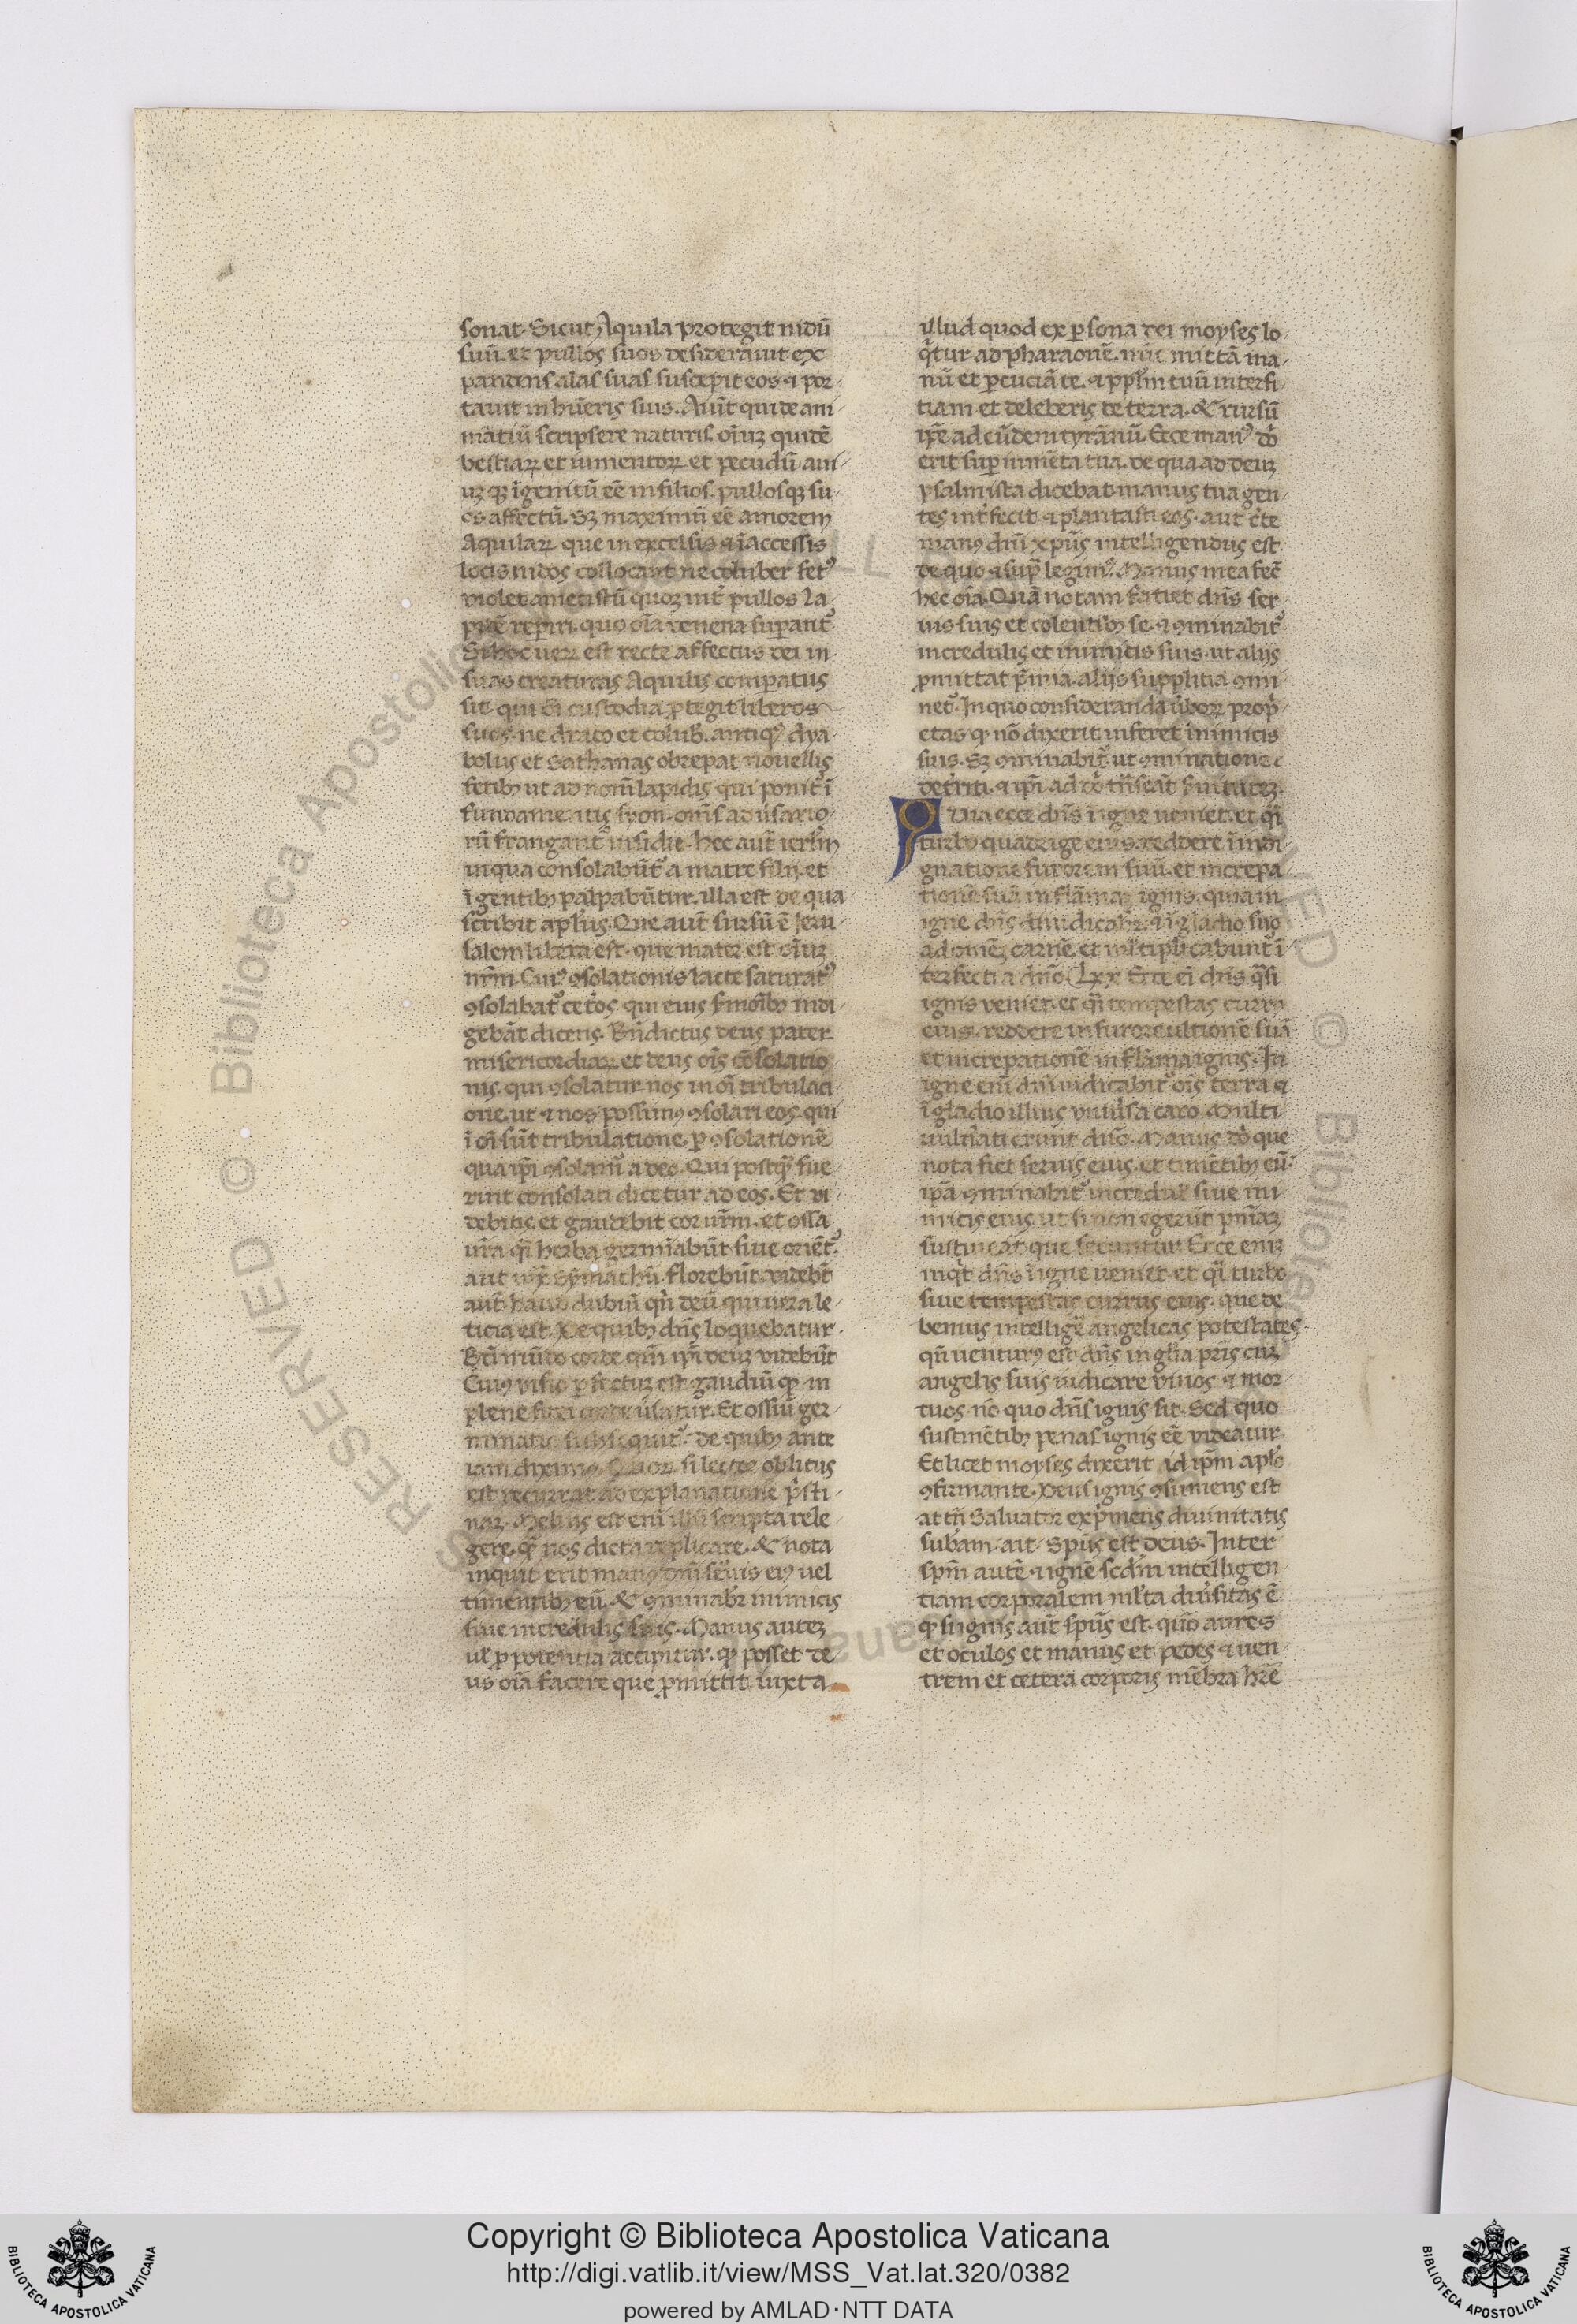 sonat. Sicut Aquila protegit nidū
suū. et pullos suos desiderauit ex
pandens alas suas suscepit eos. ⁊ por
tauit in hūeris suis. Aiūt qui de ani
mātiū scripsere naturis. oīuꝫ quidē
bestiaꝝ et iumentoꝝ et pecudū aui
uꝫ qꝫ īgenitū eē in filios. pullosqꝫ su
os affectū. Sꝫ maximū eē amorem
Aquilaꝝ que in excelsis ⁊ īaccessis
locis nidos collocant ne coluber fetꝰ
violet. ametistū quoꝫ int̄ pullos la
pidē reperiri. quo oīa venena superant᷑.
Si hoc ueꝝ est recte affectus dei in
suas creaturas Aquilis comparatus
sit. qui oī custodia ꝓtegit liberos
suos. ne draco et colub̄. antiqꝰ dya
bolus et Sathanas obrepat nouellis
fetibꝫ ut ad nom̄ lapidis qui ponit᷑ ī
fundamentis syon. om̄s aduersario
rū frangant᷑ insidie. hec aut̄ ierl̄m
in qua consolabūt᷑ a matre filij. et
ī gentibꝫ palpabūtur. illa est de qua
scribit apl̄us. Que aut̄ sursū ē Ieru
salem libera est. que mater est oīuꝫ
nr̄m. Cuiꝰ ꝯsolationis lacte saturatꝰ
ꝯsolabat᷑ cet̄os. qui eius sermoībꝫ indi
gebāt dicens. Bn̄dictus deus pater
misericordiaꝝ et deus oīs cōsolatio
nis. qui ꝯsolatur nos in oī tribulaci
one. ut ⁊ nos possimꝰ ꝯsolari eos. qui
ī oī sūt tribulatione. ꝑ ꝯsolationē
qua ip̄i ꝯsolam᷑ a deo. Qui postq̄ fue
rint consolati dicetur ad eos. Et vi
debitis et gaudebit cor ur̄m. et ossa
ur̄a q̄i herba germīabūt siue oriēt᷑.
aut iux̄ Symachū. florebūt. videbūt
aut̄ haud dubiū qn̄ deū qui uera le
ticia est. De quibꝫ dn̄s loquebatur.
Bt̄i mūdo corde qm̄ ip̄i deuꝫ videbūt
Cuiꝰ visio perfectuꝫ est gaudiū qꝫ in
plene suo corde ūsatur. Et ossiū ger
minatio subsequit᷑. de quibꝫ ante
iam diximꝰ. Quoꝝ si lector oblitus
est recurrat ad explanatione p̄sti
naꝫ. Melius est enī illū scripta rele
gere. q̄ nos dicta replicare. & nota
inquit erit manꝰ dn̄i seruis eiꝰ uel
timentibꝫ eū. & ꝯminab᷑r inimicis
siue incredulis suis. Manus auteꝫ
ul̄ pro potentia accipitur. qꝫ posset de
us oīa facere que ꝓmittit iuxta
illud quod ex ꝑsona dei moyses lo
q̄tur ad pharaonē. nūc mittā ma
nū et ꝑcuciā te. ⁊ ppl̄m tuū interfi
tiam. et deleberis de terra. & rursū
ip̄e ad eūdem tyrānū. Ecce manꝰ dn̄i
erit super iumēta tua. de qua ad deuꝫ
psalmista dicebat. manus tua gen
tes int̄fecit ⁊ plantasti eos. aut c̄te
manꝰ dn̄i xp̄us intelligendus est.
de quo ⁊ sup̄ legimꝰ. Manus mea fec̄
hec oīa. Quā notam faciet dn̄s ser
uis suis et colentibꝫ se. ⁊ ꝯminabit᷑
incredulis et inimicis suis. ut alijs
ꝓmittat p̄mia. alijs supplitia ꝯmi
net᷑. In quo consideranda ūboꝝ propͥ
etas qꝫ nō dixerit inferet inimicis
suis. Sꝫ ꝯminabit᷑. ut ꝯminatione
det̄riti. ⁊ ip̄i ad
Quia ecce dn̄s ī igne ueniet. et q̄i
turbo quadrige eius. reddere ī indi
gnatione furorem suū. et increpa
tionē suā in flāma ignis. quia in
igne dn̄s diiudicab᷑r. ⁊ ī gladio suo
ad omnē carnē. et ml̄tiplicabunt᷑ ī
terfecti a dn̄o. Lxx. Ecce eī dn̄s q̄si
ignis veniet. et q̄i tempestas currꝰ
eius. reddere in furore ultionē suā
et increpationē in flāma ignis. In
igne enī dn̄i iudicabit᷑ oīs terra ⁊
ī gladio illius uniūsa caro. Multi
uuln̄ati erunt a dn̄o. Manus dn̄i que
nota fiet seruis eius. et timētibꝫ eū.
ip̄a ꝯminabit᷑ incredul᷑ siue ini
micis eius ut si non egerūt pn̄iaꝫ
sustineāt que secuntur. Ecce eniꝫ
inqͥt dn̄s ī igne ueniet. et q̄i turbo
siue tempestas currus eius. que de
bemus intelligē angelicas potestates.
qn̄ venturꝰ est dn̄s in gl̄ia pr̄is cuꝫ
angelis suis iudicare viuos ⁊ mor
tuos. nō quo dn̄s ignis sit. Sed quo
sustinētibꝫ penas ignis eē videatur.
Et licet moyses dixerit id ip̄m apl̄o
ꝯfirmante. Deus ignis ꝯsumens est
attn̄ Saluator exp̄mens diuinitatis
subām. ait. Spūs est deus. Inter
spm̄ autē ⁊ ignē scd̄m intelligen
tiam corporalem ml̄ta diūsitas ē
qꝫ si ignis aut̄ spūs est. quō aures
et oculos et manus et pedes ⁊ uen
trem et cetera corporis mēbra hr̄e
Copyright © Biblioteca Apostolica Vaticana
http://digi.vatlib.it/view/MSS_Vat.lat.320/0382
powered by AMLAD·NTT DATA
BIBLIOTECA APOSTOLICA VATICANA
BIBLIOTECA APOSTOLICA VATICANA